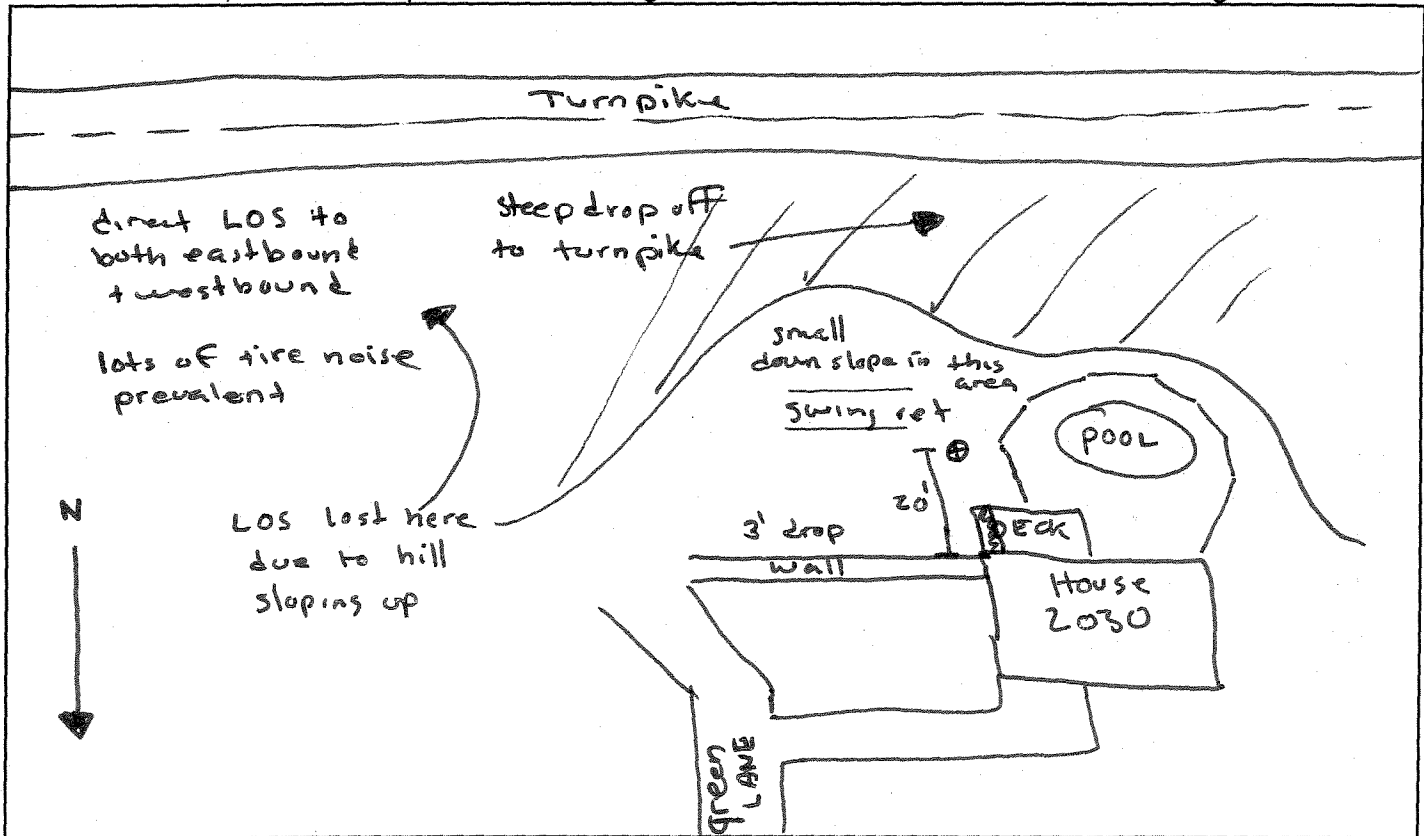 Turnpike
direct LOS to
both eastbound
+ westbound
lots of tire noise
prevalent
steep drop off
to turnpike
small
down slope in this
area
swing set
POOL
20'
N
LOS lost here
due to hill
sloping up
3' drop
wall
DECK
House
2030
green
LANE